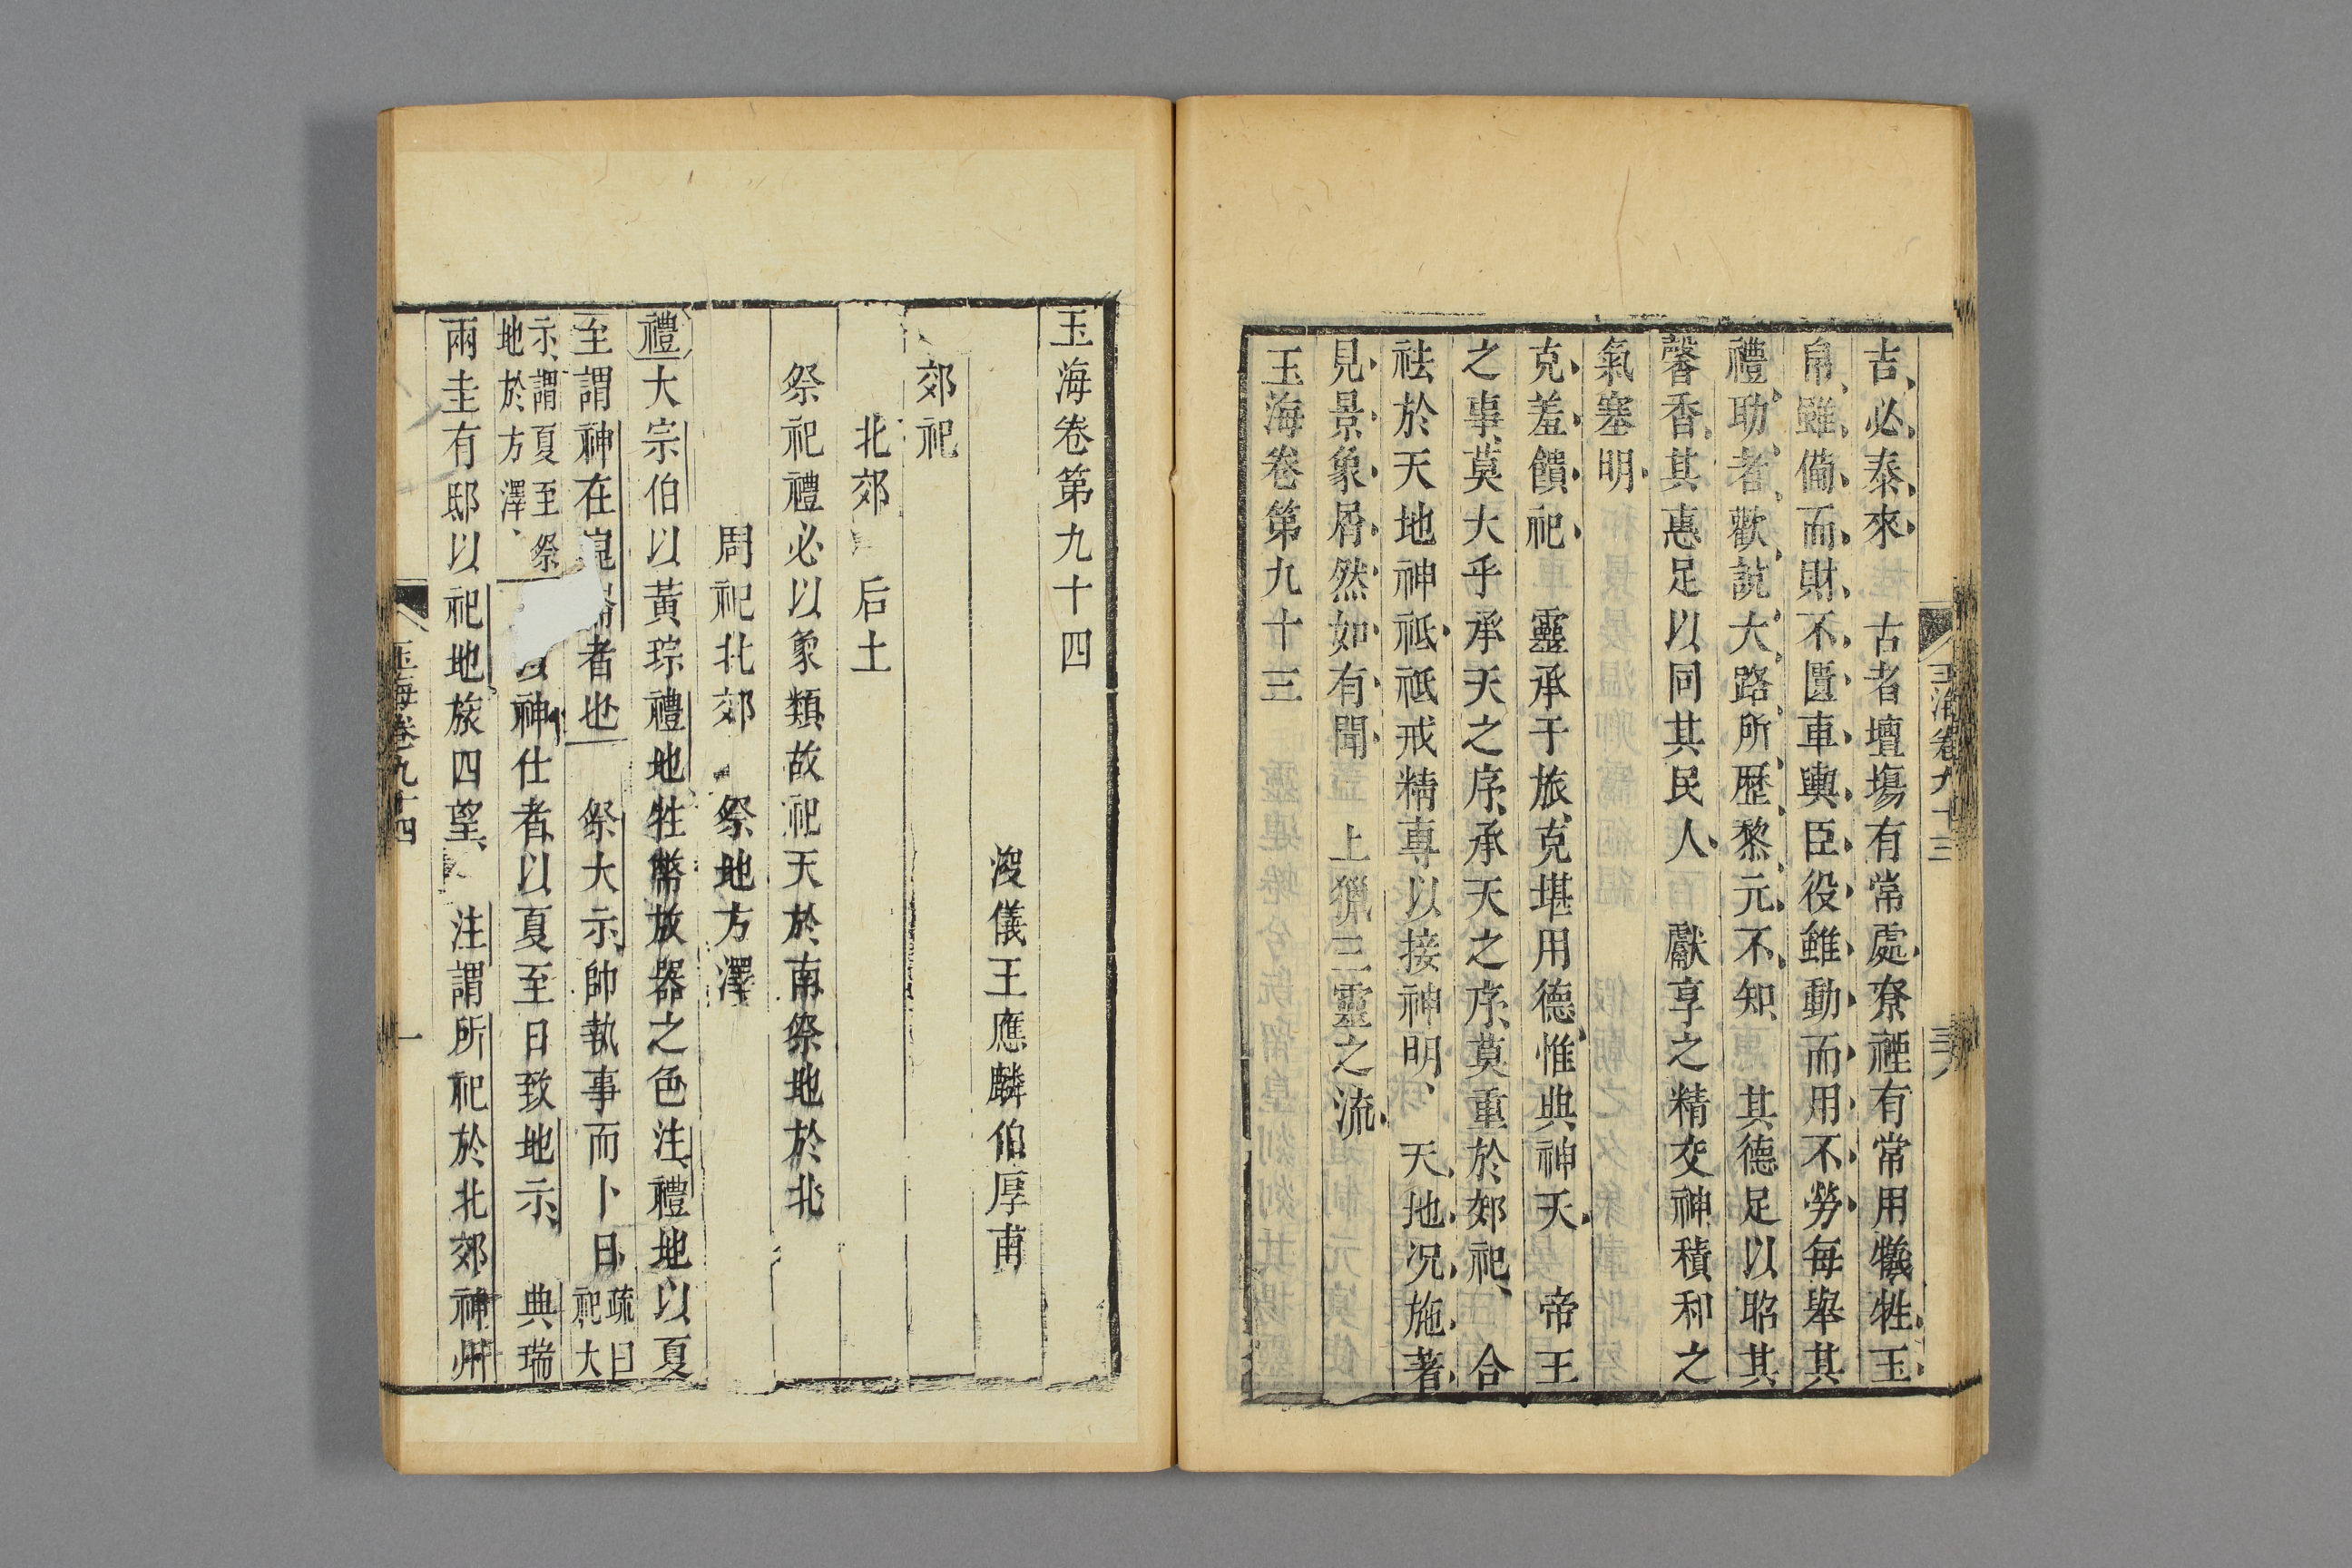 玉海卷九十三
三六
吉必泰來 古者壇場有常處尞禋有常用犧牲玉
帛雖備而財不匱車輿臣役雖動而用不勞每舉其
禮助者歡說大路所歷黎元不知 其德足以昭其
馨香其惠足以同其民人 獻享之精交神積和之
氣塞明
克羞饋祀 靈承于旅克堪用德惟典神天 帝王
之事莫大乎承天之序承天之序莫重於郊祀 合
祛於天地神祇祗戒精專以接神明 天地況施著
見景象屑然如有聞 上獵三靈之流
玉海卷第九十三
玉海卷第九十四
浚儀王應麟伯厚甫
郊祀
北郊 后土
祭祀禮必以象類故祀天於南祭地於北
周祀北郊 祭地方澤
禮大宗伯以黃琮禮地牲幣放器之色注禮地以夏
至謂神在崑崙者也 祭大示帥執事而卜日疏曰祀大
示謂夏至祭地於方澤 神仕者以夏至日致地示 典瑞
兩圭有邸以祀地旅四望 注謂所祀於北郊神州
玉海卷九十四
一